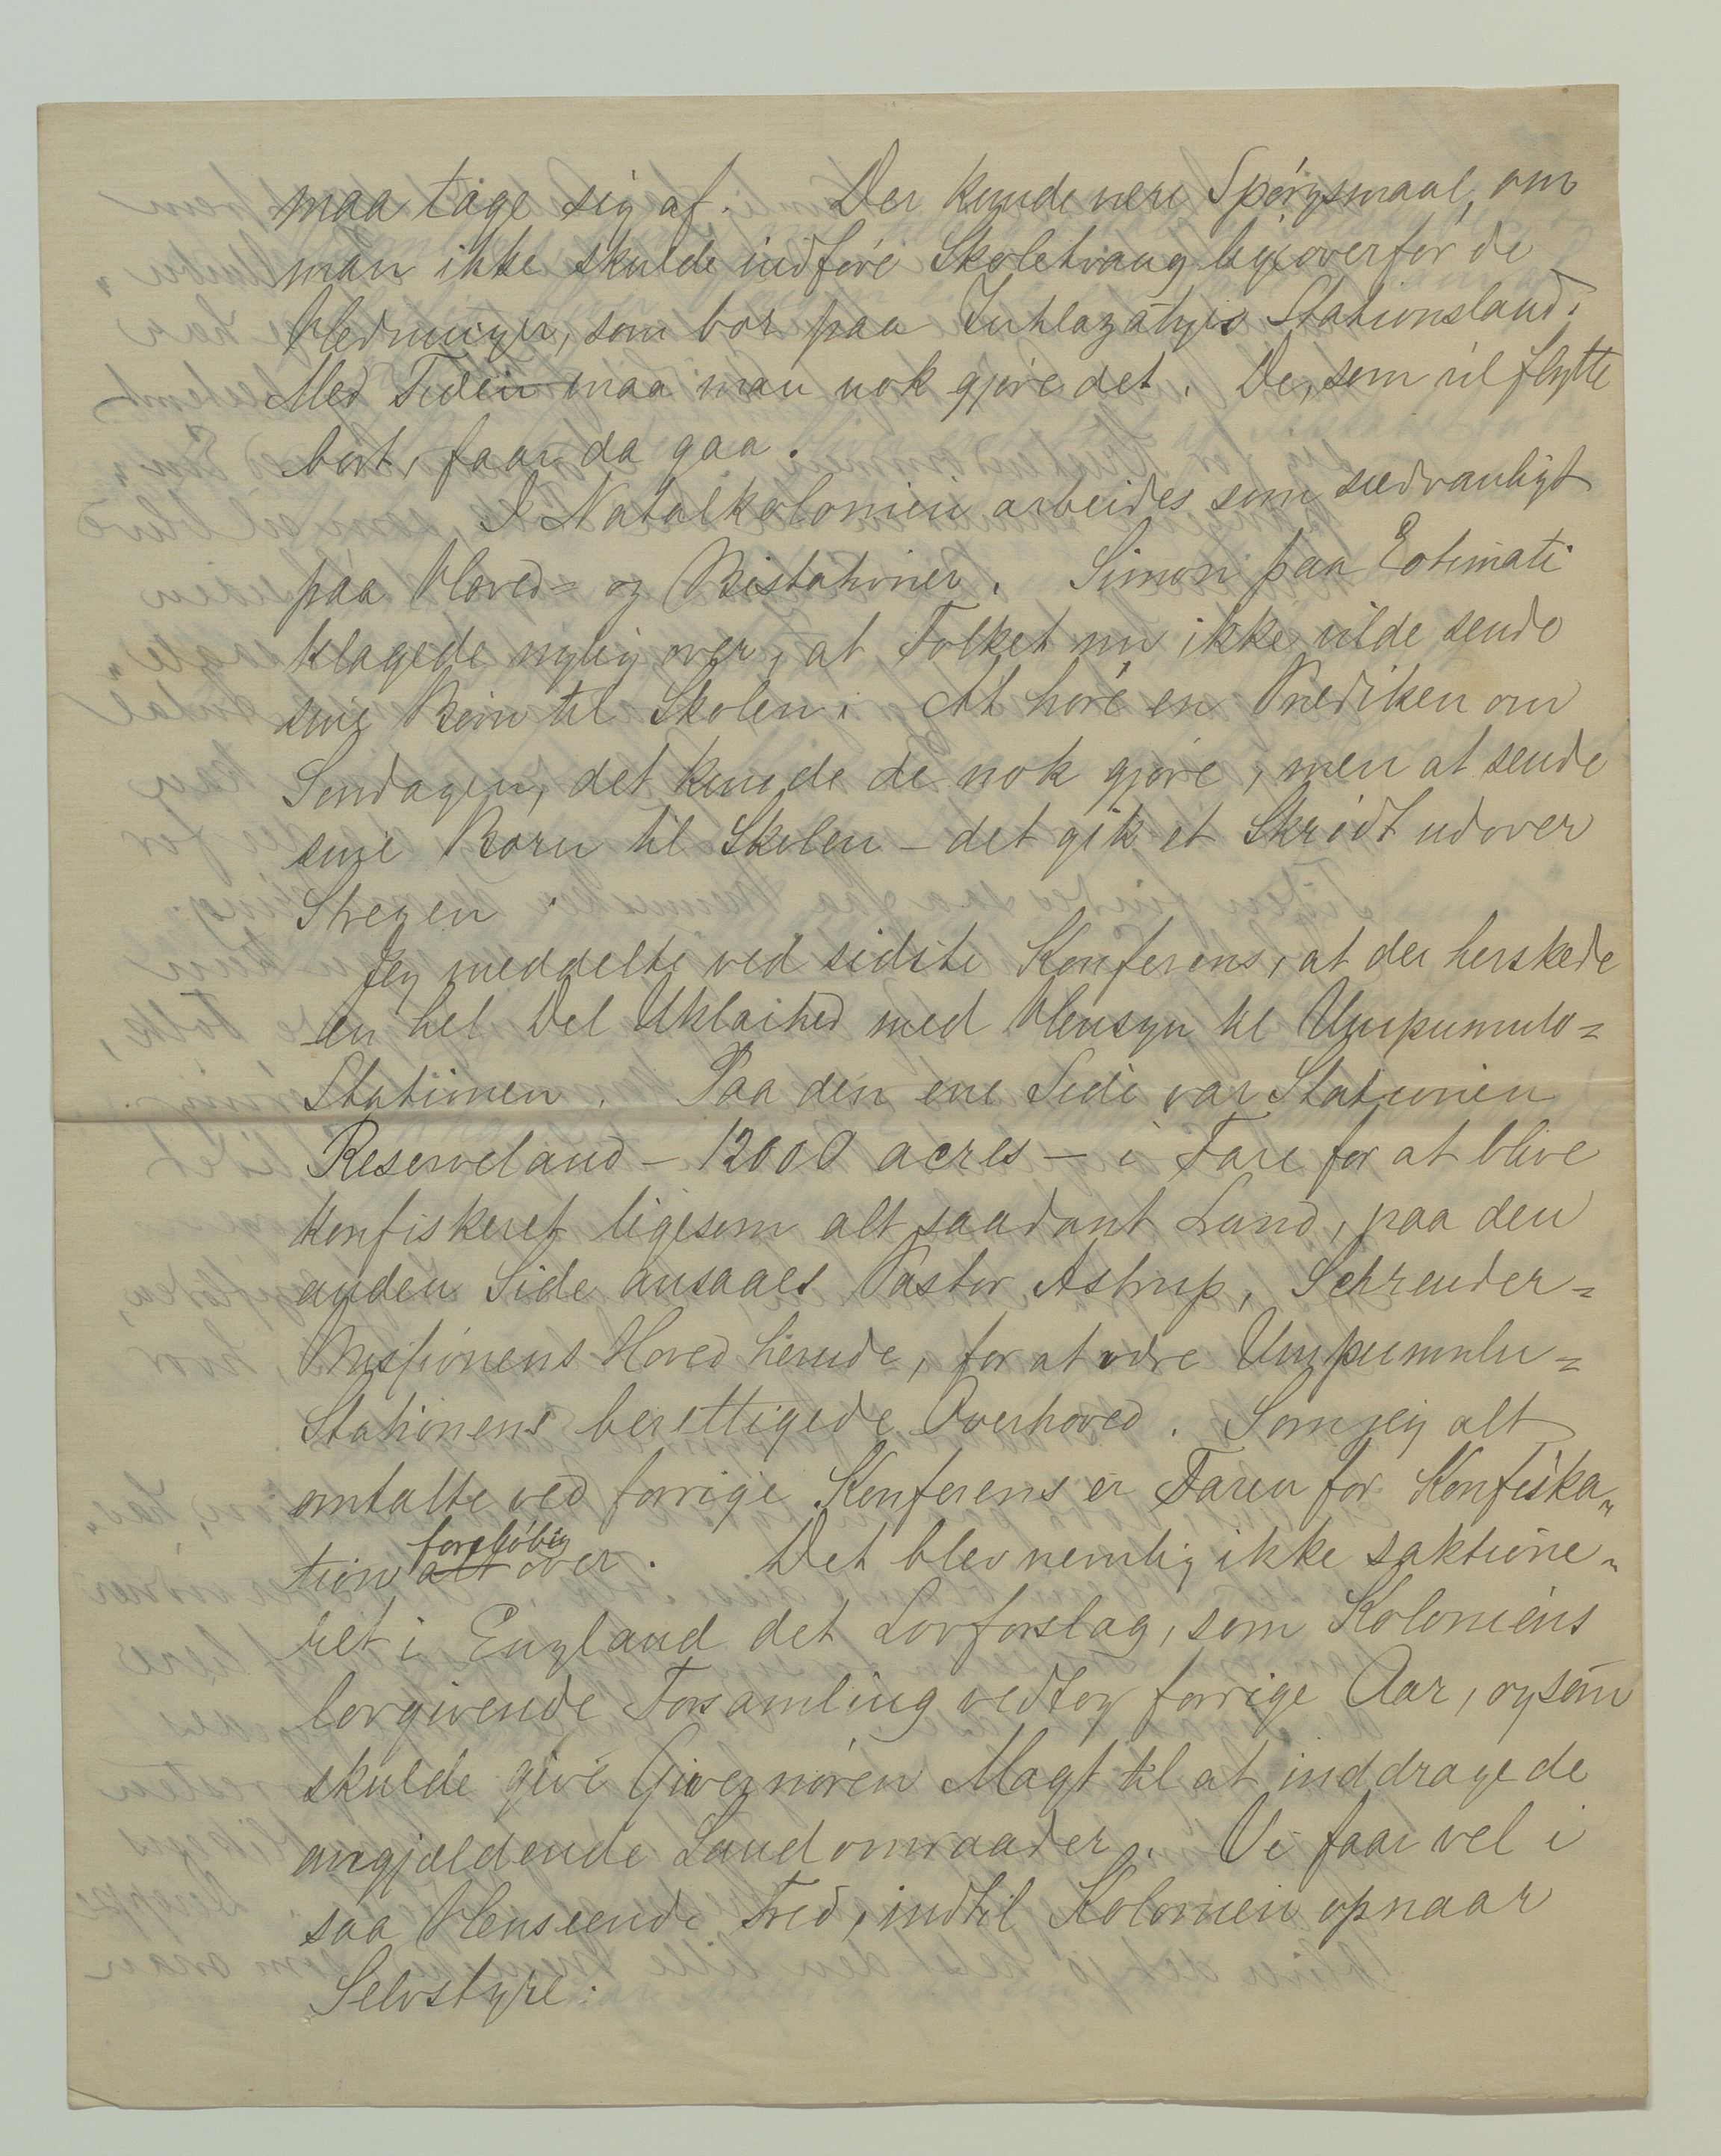 maa tage sig af. Der kunde være Spörgsmaal, om
man ikke skulde indföre Skoletvang ligeoverfor de
Hedninger, som bor paa Inhlazatyes Stationsland.
Med Tiden maa man nok gjøre det. De, som vil flytte
bort, faar da gaa.
I Natalkolonien arbeides som sædvanligt
paa Hoved= og Bistationer. Simon paa Eotimati
klagede nylig over, at Folket nu ikke vilde sende
sine Börn til Skolen. At høre en Prædiken om
Søndagen, det kunde de nok gjøre, men at sende
sine Børn til Skolen – det gik et Skridt udover
Stregen.
Jeg meddelte ved sidste Konferens, at der herskede
en hel Del Uklarhed med Hensyn til Umpumulo=
Stationen. Paa den ene Side var Stationen
Reserveland – 12000 acres – i Fare for at blive
konfiskeret ligesom alt saadant Land, paa den
anden Side ansaaes Pastor Astrup, Schreuder=
Missionens Hoved herude, for at være Umpumulu=
Stationens berettigede Overhoved. Som jeg alt
omtalte ved forrige Konferens er Faren for Konfiska„
tion alt foreløbig over. Det blev nemlig ikke saktione„
ret i England det Lovforslag, som Koloniens
lovgivende Forsamling vedtog forrige Aar, og som
skulde give Guvernören Magt til at inddrage de
angjældende Landomraader. Vi faar vel i
saa Henseende Fred, indtil Kolonien opnaar
Selvstyre.